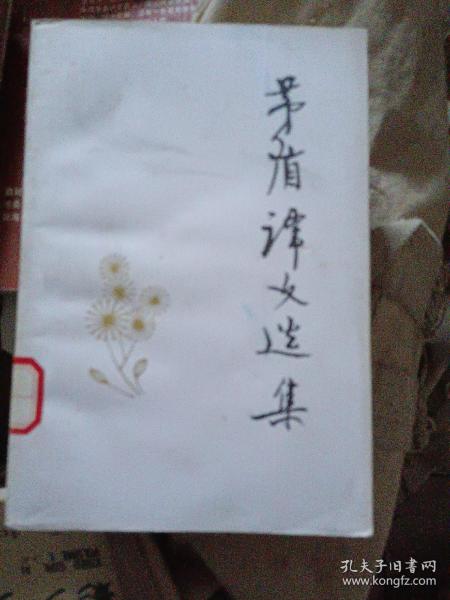 茅盾译文选集
孔夫子旧书网
www.kongfz.com